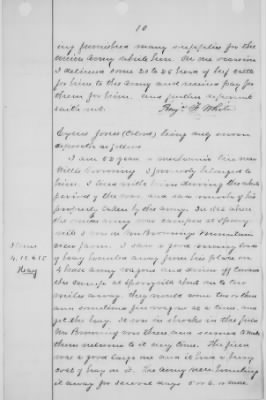 10
my furnished many supplies for the
Union Army while here. On one occasion
I delivered some 20 to 25 head of beef cattle
for him to this Army and received pay for
them for him. and further deponent
saith not.
Benj. F. White
Cyrus Jones (Colored) being duly sworn
deposeth as follows
I am 52 years a mechanic live near
Wells Browning I formerly belonged to
him. I lived with him during the whole
period of the war and saw much of his
property taken by the Army. In
the Union Army was camped at Spring
hill I was on Mr Browning Mountain
view farm. I saw a good many loads
of hay hauled away from his place on
4 horse Army wagons and driven off toward
the camps at Springhill about one to two
miles away. They would come two or three
and sometimes five wagons at a time and
get the hay. It was in shocks in the field
Mr Browning was there and seemed
them to it any time. The field
was a good large one and it had a heavy
coat of hay on it. The Army were hauling
it away for several days 5 or 6
Items
4, 12 & 15
Hay